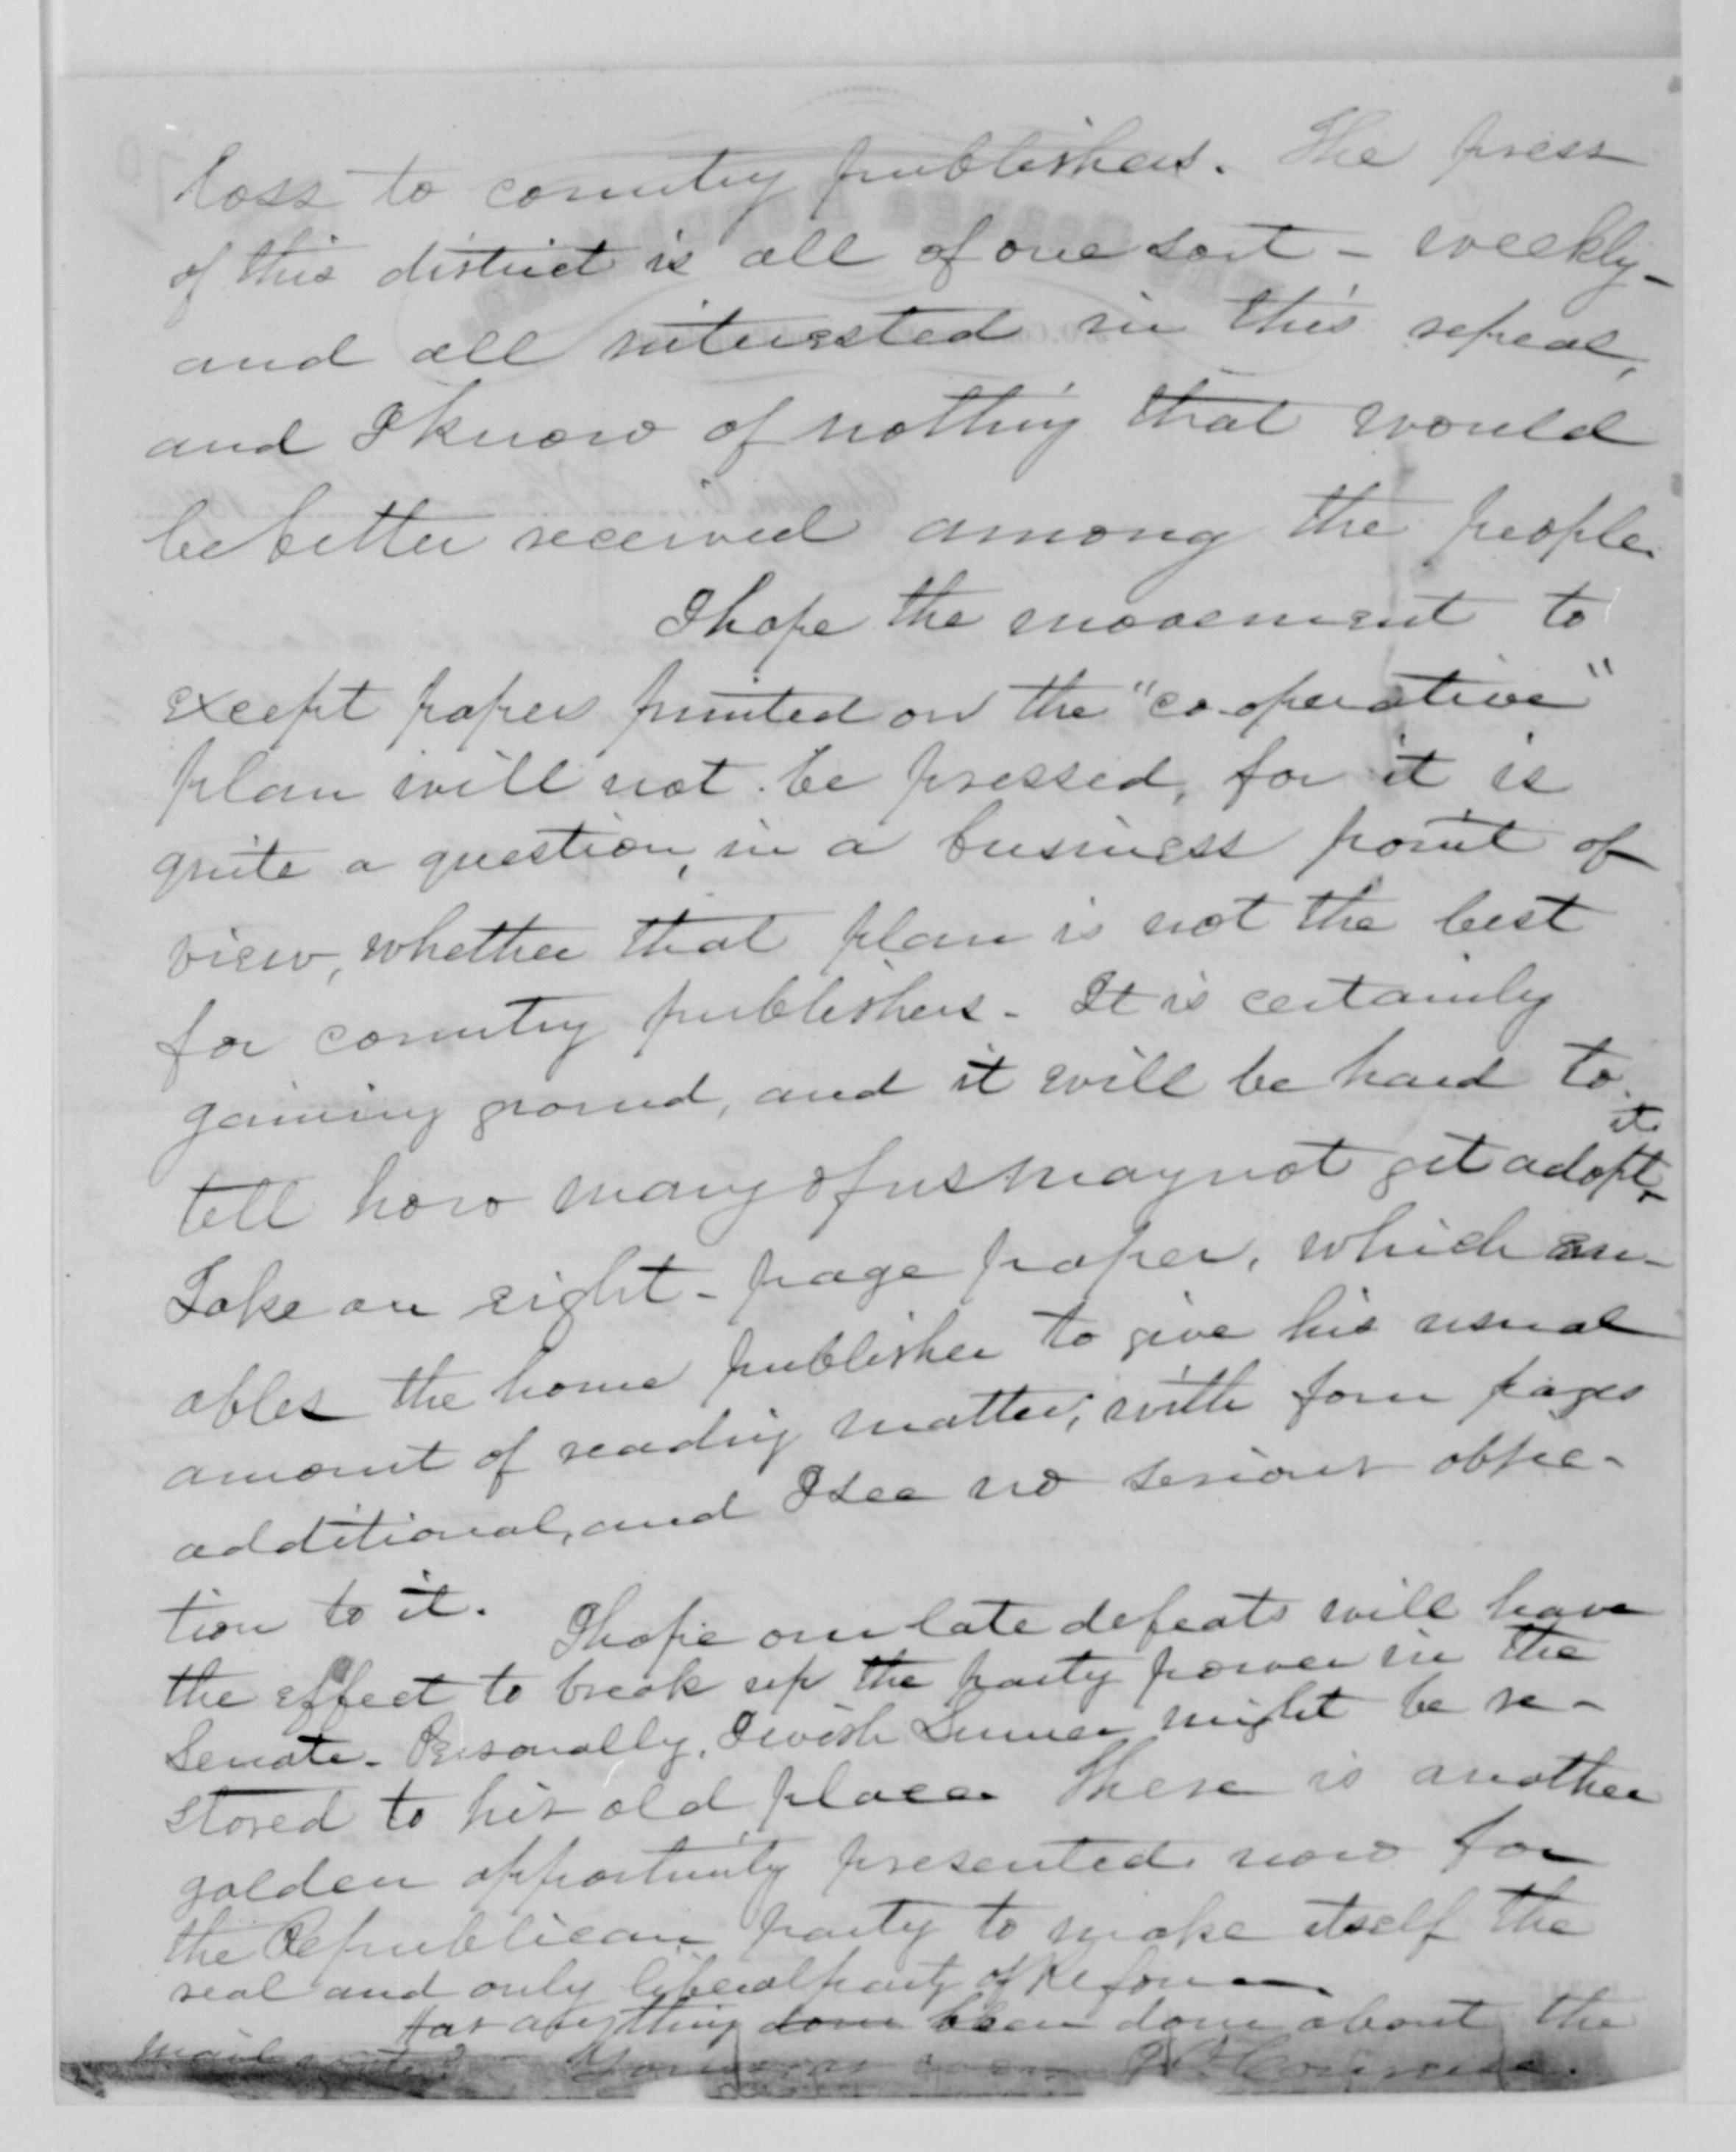 loss to country publishers. The press
of this district is all of one sort - weekly -
and all interested in this repeal,
and I know of nothing that would
be better received among the people.
I hope the movement to
except papers printed on the "co-operative"
plan will not be pressed, for it is
quite a question, in a business point of
view, whether that plan is not the best
for country publishers - It is certainly
gaining ground, and it will be hard to
tell how many of us may not yet adopt it.
Take an eight-page paper, which en-
ables the home publisher to give his usual
amount of reading matter, with four pages
additional, and I see no serious objec-
tion to it.
I hope our late defeats will have
the effect to break up the party power in the
Senate - Personally, I wish Sumner might be re-
stored to his old place. There is another
golden opportunity presented now for
the Republican party to make itself the
real and only liberal party of Reform.
Has anything done been done about the
mail route? - Yours J. O. Converse.